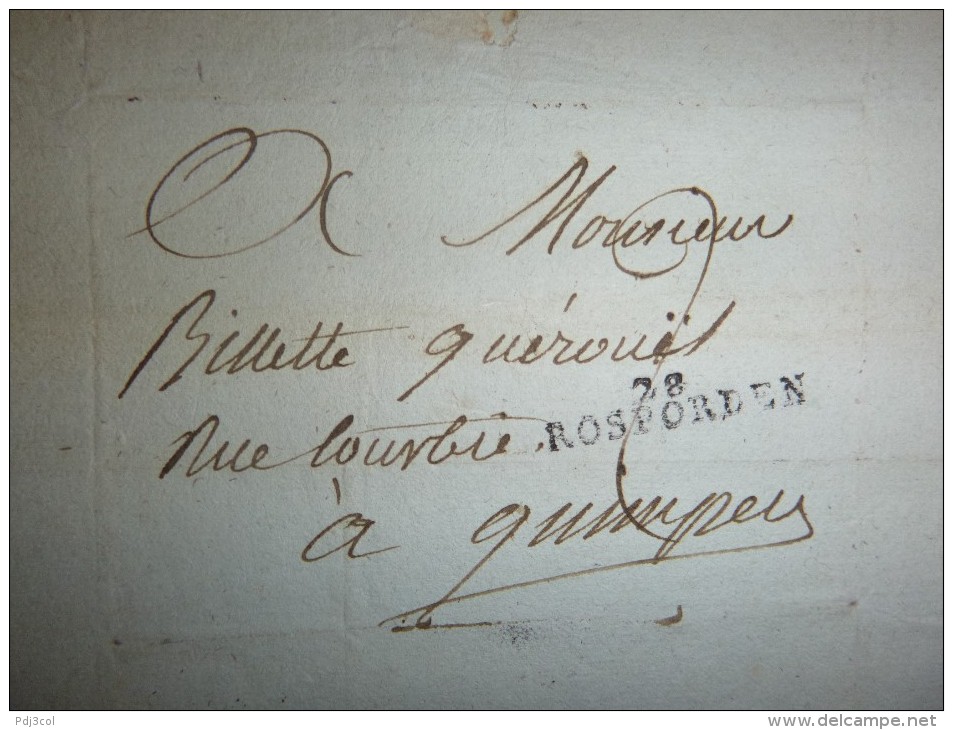 A Monsieur
Billette quérouël
Rue
28
ROSPORDEN
à quimper
Pdj3col
www.delcampe.net